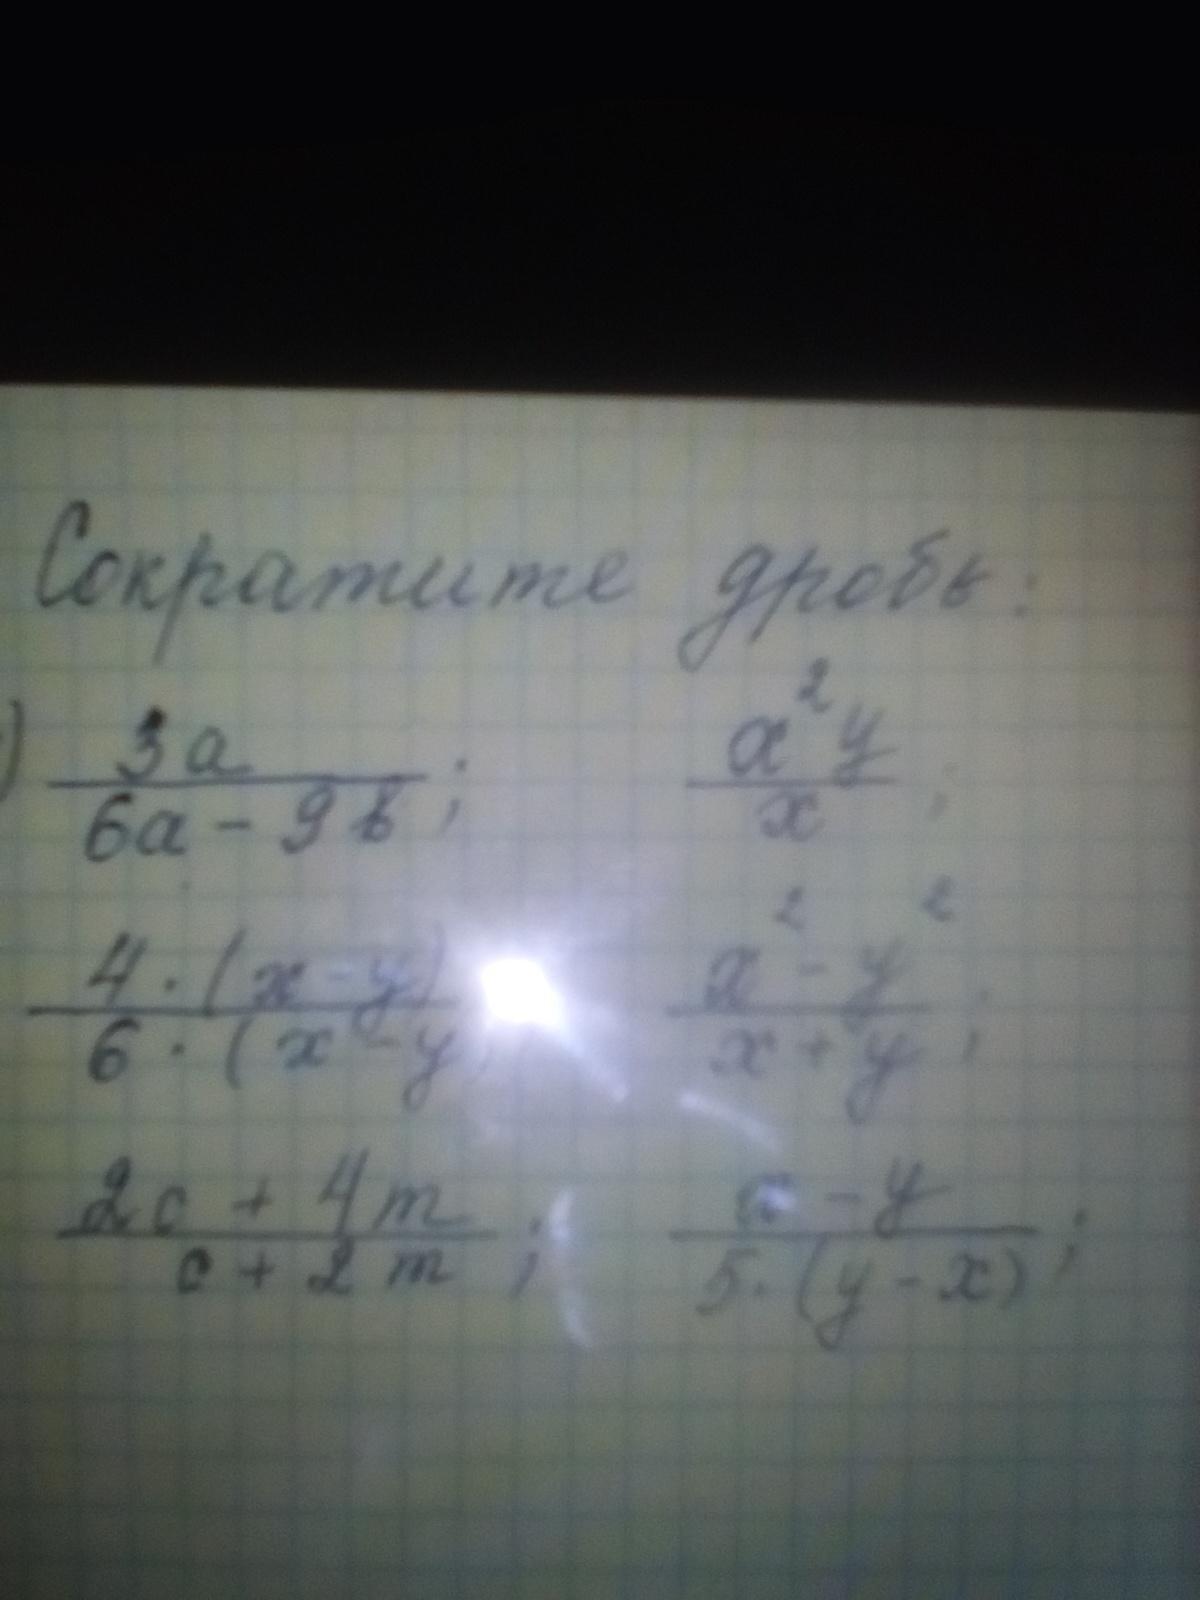 Сократите дробь:
) 3a / 6a - 9b ; x²y / x ;
4 · (x - y) / 6 · (x - y) x² - y² / x + y ;
2c + 4m / c + 2m ; x - y / 5 · (y - x) ;